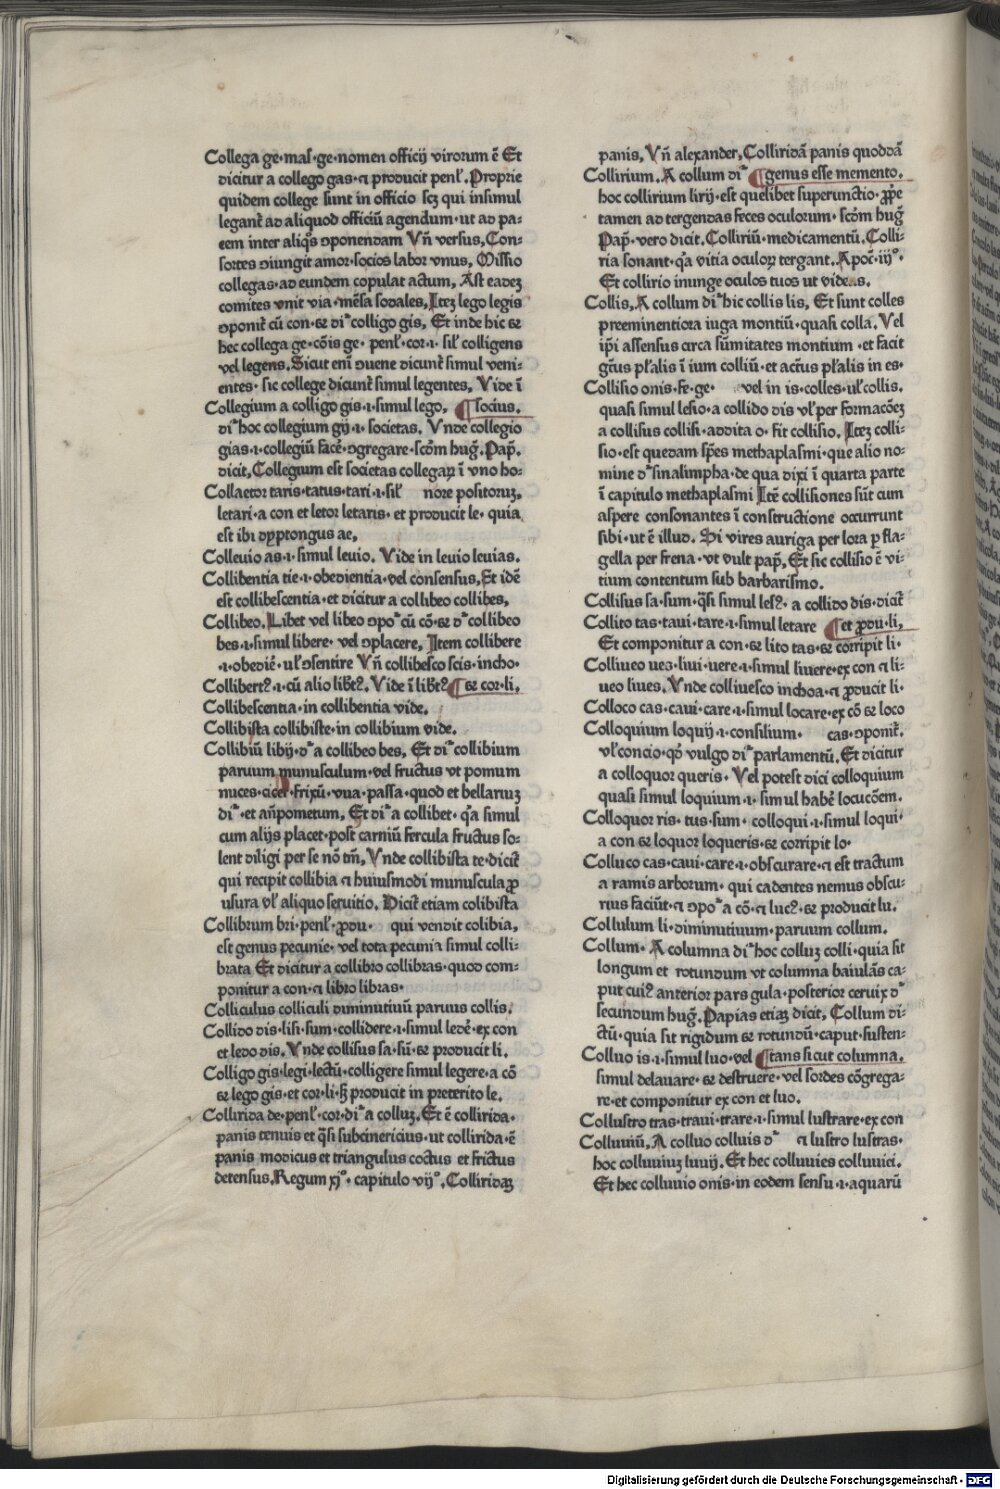 Collega ge·maſ·ge·nomen officij virorum ē Et
dicitur a collego gas·⁊ producit penl̕.Proprie
quidem college ſunt in officio ſcꝫ qui inſimul
legant̄ ad aliquod officiū agendum·ut ad pa⸗
cem inter aliq̄s ↄponendam Vn̄ verſus,Con⸗
ſortes ↄiungit amor·ſocios labor vnus, Miſſio
collegas·ad eundem copulat actum, Aſt eadeꝫ
comites vnit via·mēſa ſodales,Iteꝫ lego legis
ↄponit̄ cū con·⁊ di͛ colligo gis, Et inde hic ⁊
hec collega ge·cōis ge· penl̕·cor·i· ſil̕ colligens
vel legens.Sicut enī ↄuene dicunt̄ ſimul veni⸗
entes· ſic college dicunt̄ ſimul legentes, Vide ī
Collegium a colligo gis·i·ſimul lego, ¶ſocius.
di͛ hoc collegium gij·i· ſocietas. Vnde collegio
gias·i·collegiū facē·ↄgregare·ſcōm huḡ.Pap̄.
dicit,Collegium eſt ſocietas collegaꝝ ī vno ho⸗
Collaetor taris·tatus·tari·i·ſil̕ nore poſitoruꝫ,
letari·a con et letor letaris· et producit le· quia
eſt ibi dyptongus ae,
Colleuio as·i·ſimul leuio. Vide in leuio leuias.
Collibentia tie·i·obedientia·vel conſenſus,Et idē
eſt collibeſcentia·et dicitur a collibeo collibes,
Collibeo.Libet vel libeo ↄpo͛ cū cō·⁊ d͛ collibeo
bes·i·ſimul libere· vel ↄplacere, Item collibere
·i·obediē·ul̕ ↄſentire Vn̄ collibeſco ſcis·incho·
Collibertꝰ·i·cū alio libt̄ꝰ.Vide ī libt̄ꝰ ¶⁊ cor·li,
Collibeſcentia·in collibentia vide,
Collibiſta collibiſte·in collibium vide.
Collibiū libij·d͛ a collibeo bes, Et di͛ collibium
paruum munuſculum·vel fructus vt pomum
nuces·cicer·frixū·vua·paſſa·quod et bellariuꝫ
di͛·et an̄pometum, Et di͛ a collibet· q̄a ſimul
cum alijs placet·poſt carniū fercula fructus ſo⸗
lent diligi per ſe nō tm̄,Vnde collibiſta te·dicit̄
qui recipit collibia ⁊ huiuſmodi munuſcula ꝓ
uſura vl̕ aliquo ſeruitio. Dicit̄ etiam colibiſta
Collibrum bri·penl̕·ꝓdu· qui vendit colibia,
eſt genus pecunie· vel tota pecunia ſimul colli⸗
brata Et dicitur a collibro collibras·quod com⸗
ponitur a con·⁊ libro libras·
Colliculus colliculi diminutiuū paruus collis.
Collido dis·liſi·ſum·collidere·i·ſimul ledē·ex con
et ledo dis.Vnde colliſus ſa·ſū·⁊ producit li.
Colligo gis·legi·lectū·colligere ſimul legere·a cō
⁊ lego gis·et cor·li·ſꝫ producit in preterito le.
Collirida de·penl̕·cor·di͛ a colluꝫ.Et ē collirida·
panis tenuis et q̄ſi ſubcinericius·ut collirida·ē
panis modicus et triangulus coctus et frictus
detenſus.Regum xj°· capitulo vij°.Collirídaꝫ
panis, Vn̄ alexander,Colliridā panis quoddā
Collirium.A collum di͛ ¶genus eſſe memento.
hoc collirium lirij·eſt quelibet ſuperunctio· ꝓp̄e
tamen ad tergendas feces oculorum· ſcōm huḡ
Pap̄·vero dicit.Colliriū·medicamentū.Colli⸗
ria ſonant·q̄a vitia oculoꝝ tergant.Apoc̄·iij°·
Et collirio inunge oculos tuos ut videas.
Collis,A collum di͛ hic collis lis, Et ſunt colles
preeminentiora iuga montiū·quaſi colla.Vel
ip̄i aſſenſus circa ſūmitates montium·et facit
gt̄us pl̕alis ī ium colliū·et actus pl̕alis in es·
Colliſio onis·fe·ge· vel in is·colles·ul̕ collis.
quaſi ſimul leſio·a collido dis vl̕ per formacōeꝫ
a colliſus colliſi·addita o· fit colliſio.Iteꝫ colli⸗
ſio·eſt quedam ſpēs methaplaſmi·que alio no⸗
mine d͛ ſinalimpha·de qua dixi ī quarta parte
ī capitulo methaplaſmi Itē colliſiones ſūt cum
aſpere conſonantes ī conſtructione occurrunt
ſibi·ut ē illud. Si vires auriga per lora ꝑ fla⸗
gella per frena·vt vult pap̄,Et ſic colliſio ē vi⸗
tium contentum ſub barbariſmo.
Colliſus ſa·ſum·q̄ſi ſimul leſꝰ· a collido dis·dicit̄
Collito tas·taui·tare·i·ſimul letare ¶et ꝓdu·li,
Et componitur a con·⁊ lito tas·⁊ corripit li·
Colliueo ues·liui·uere·i·ſimul liuere·ex con ⁊ li⸗
ueo liues. Vnde colliueſco inchoa·⁊ ꝓducit li·
Colloco cas·caui·care·i·ſimul locare·ex cō ⁊ loco
Colloquium loquij·i·conſilium· cas·ↄponit̄.
vl̕ concio·qd̕ vulgo di͛ parlamentū.Et dicitur
a colloquor queris· Vel poteſt dici colloquium
quaſi ſimul loquium·i·ſimul habē locucōem.
Colloquor ris·tus·ſum· colloqui·i·ſimul loqui·
a con ⁊ loquor loqueris·⁊ corripit lo·
Colluco cas·caui·care·i·obſcurare·⁊ eſt tractum
a ramis arborum· qui cadentes nemus obſcu⸗
rius faciūt·⁊ ↄpo͛ a cō·⁊ lucꝰ·⁊ producit lu.
Collulum li·diminutiuum·paruum collum.
Collum· A columna di͛ hoc colluꝫ colli·quia ſit
longum et rotundum vt columna baiulās ca⸗
put cuiꝰ anterior pars gula·poſterior ceruix d͛
ſecundum huḡ.Papias etiaꝫ dicit, Collum di⸗
ctū·quia ſit rigidum ⁊ rotundū·caput·ſuſten⸗
Colluo is·i·ſimul luo·vel ¶tans ſicut columna.
ſimul delauare·⁊ deſtruere·vel ſordes cōgrega⸗
re·et componitur ex con et luo.
Colluſtro tras·traui·trare·i·ſimul luſtrare·ex con
Colluuiū,A colluo colluis d͛ ⁊ luſtro luſtras·
hoc colluuiuꝫ luuij.Et hec colluuies colluuiei.
Et hec colluuio onis·in eodem ſenſu·i·aquarū
Digitalisierung gefördert durch die Deutsche Forschungsgemeinschaft - DFG